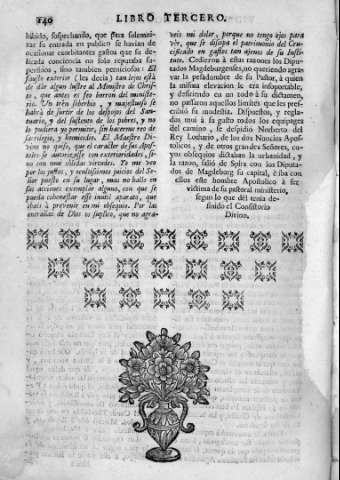 140 LIBRO TERCERO.
hibido, sospechando, que para solemni-
zar su entrada en publico se havian de
ocasionar exorbitantes gastos que su de-
licada conciencia no solo reputaba su-
perfluos, sino tambien perniciosos: El
fausto exterior (les decia) tan lejos està
de dàr algun lustre al Ministro de Chris-
to, que antes es feo borron del ministe-
rio. Un trèn soberbio, y majestuoso se
habrà de surtir de los despojos del San-
tuario, y del sustento de los pobres, y no
lo pudiera yo permitir, sin hacerme reo de
sacrilegio, y homicidio. El Maestro Di-
vino no quiso, que el caracter de sus Apos-
toles se autorizasse con exterioridades, si-
no con una olvidad virtuosa. Yo me veo
por los justos, y reverentes juicios del Se-
ñor puesto en su lugar, mas no hallo en
sus acciones exemplar alguno, con que se
pueda cohonestar esse inutil aparato, que
ahais à prevenir en mi obsequio. Por las
entrañas de Dios os suplico, que no agra-
veis mi dolor, porque no tengo ojos para
vèr, que se dissipa el patrimonio del Cru-
cificado en gastos tan agenos de su Insti-
tuto. Cedieron à estas razones los Diputa-
dos Magdeburgenses, no queriendo agra-
var la pesadumbre de su Pastor, à quien
la misma elevacion le era insoportable,
y defiriendo en un todo à su dictamen,
no passaron aquellos limites que les pres-
cribiò su modestia. Dispuestos, y regla-
dos unà à su gusto todos los equipages
del camino, se despidiò Norberto del
Rey Lothario, de los dos Nuncios Apos-
tolicos, y de otros grandes Señores, cu-
yos obsequios dictaban la urbanidad, y
la razon, saliò de Spira con los Diputa-
dos de Magdeburg su capital, èiba con
ellos este hombre Apostolico à ser
victima de su pastoral ministerio,
segun lo que dèl tenia de-
finido el Consistorio
Divino.